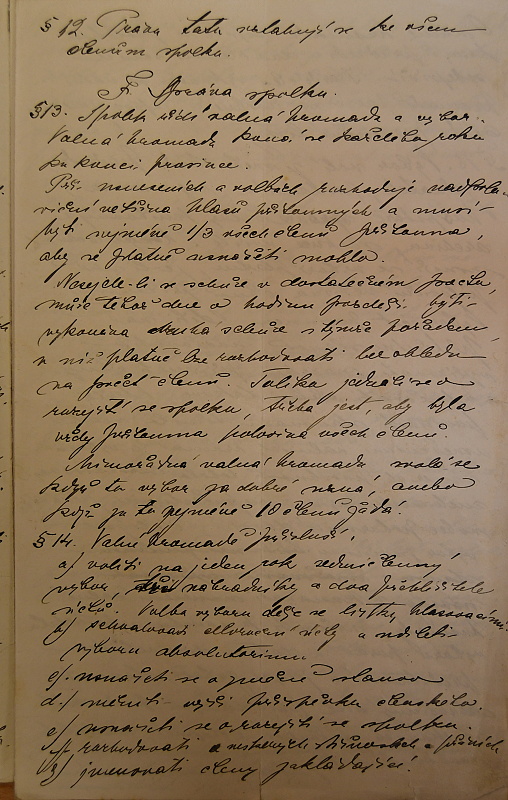 § 12. Práva tato vztahují se ke všem
členům spolku.
F. Správa spolku.
§ 13. Spolek řídí valná hromada a výbor.
Valná hromada koná se každého roku
ku konci prosince.
Při usneseních a volbách rozhoduje nadpolo-
viční většina hlasů přítomných a musí
býti nejméně 1/3 všech členů přítomna,
aby se platně usnášeti mohla.
Nesejde-li se schůze v dostatečném počtu,
může téhož dne o hodinu později býti
vykonána druhá schůze s týmž pořadem,
v níž platně lze rozhodovati bez ohledu
na počet členů. Toliko jedná-li se o
rozejití se spolku, třeba jest, aby byla
vždy přítomna polovina všech členů.
Mimořádná valná hromada svolá se
když to výbor za dobré uzná, anebo
když za to nejméně 10 členů žádá.
§ 14. Valné hromadě přísluší:
a) voliti na jeden rok sedmičlenný
výbor, náhradníky a dva přehlížitele
účtů. Volba výboru děje se lístky hlasovacími.
b) schvalovati účty a uděliti
výboru absolutorium
c) usnášeti se o změně stanov
d) určiti výši příspěvku členského.
e) usnášeti se o rozejití se spolku.
f) rozhodovati o stížnostech a
g) jmenovati členy zakládající.